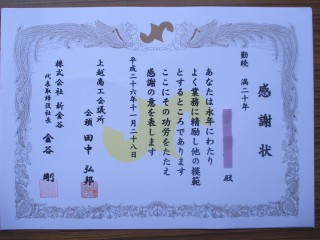 感謝状
勤続 満二十年
殿
あなたは永年にわたり
よく業務に精励し他の模範
とするところであります
ここにその功労をたたえ
感謝の意を表します
平成二十六年十一月二十八日
上越商工会議所
会頭 田中 弘邦
株式会社 新金谷
代表取締役社長 金谷 剛